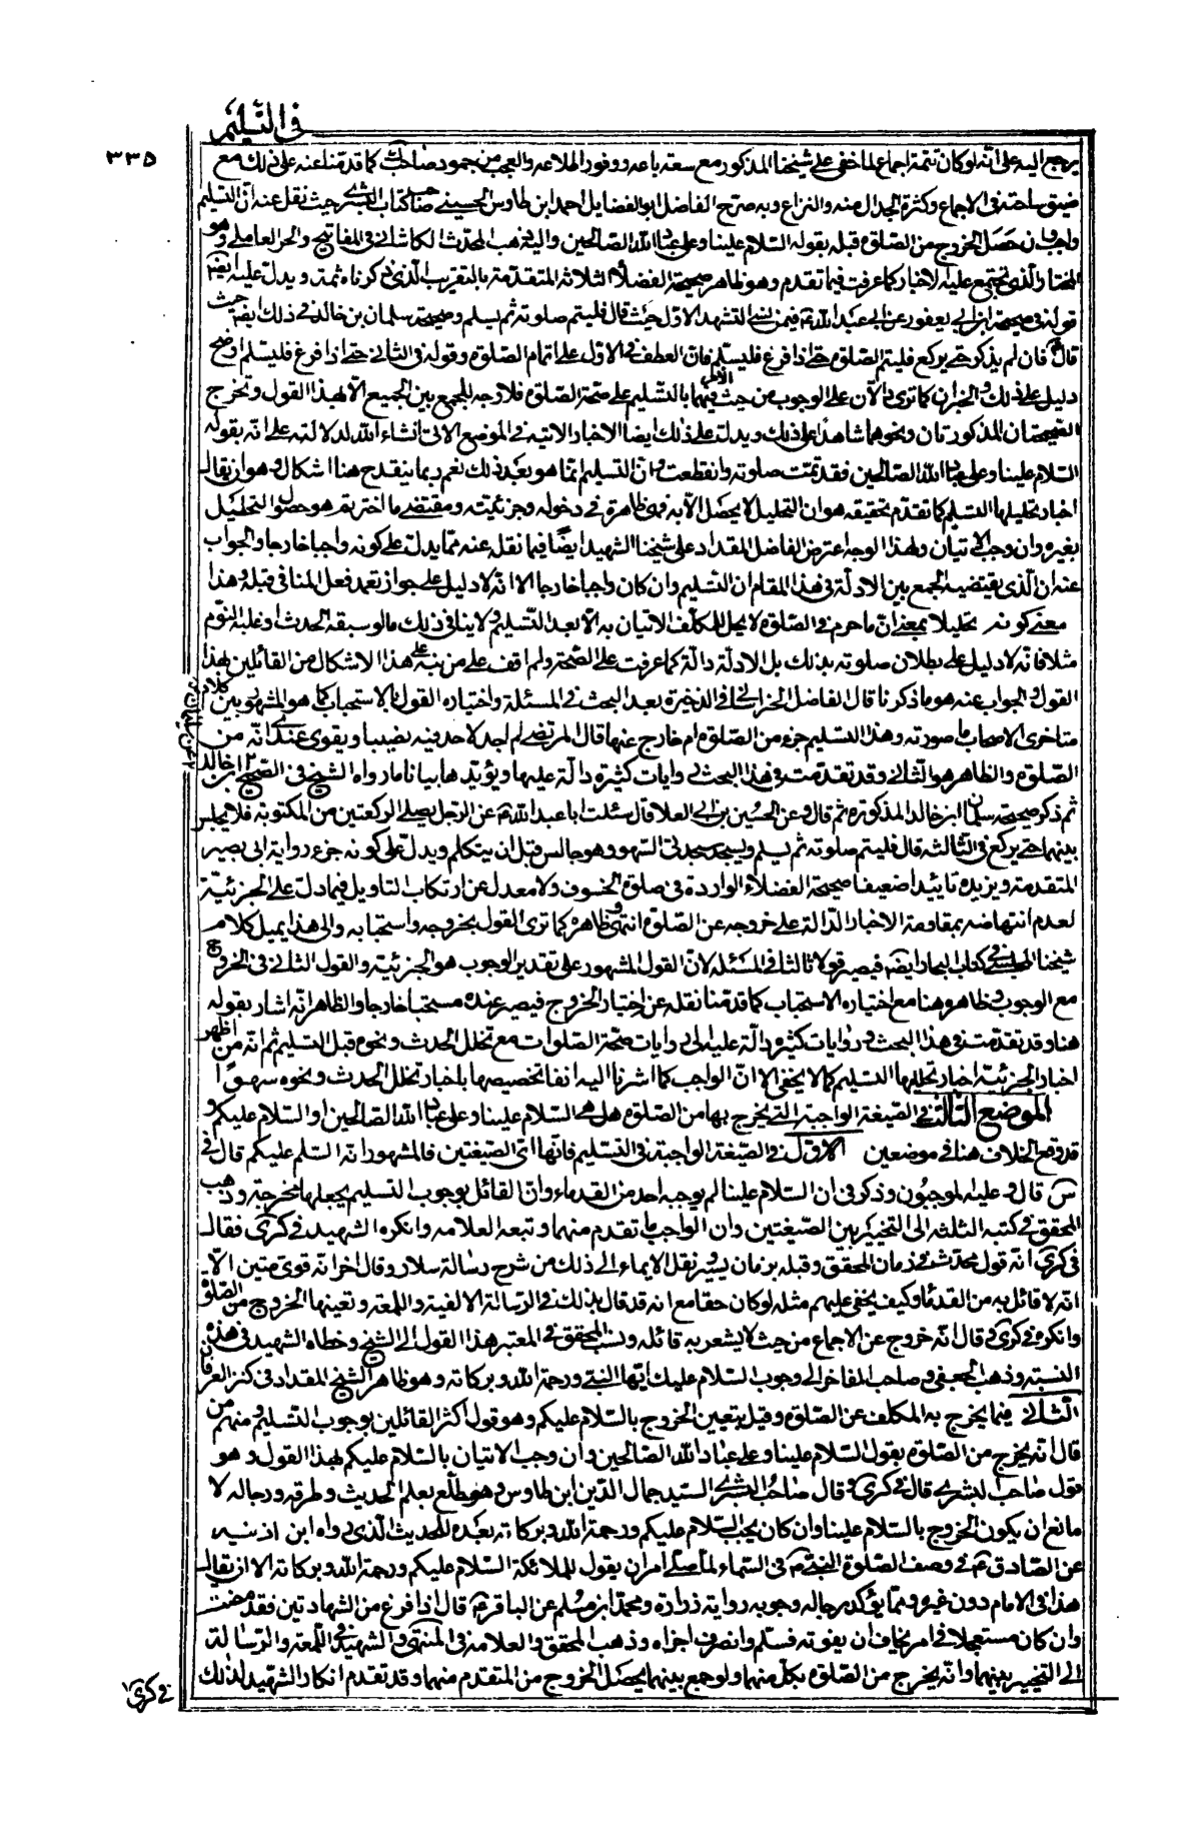 في التسليم
٣٣٥
يرجع اليه على انه لو كان ثمة اجماع لما خفي على شيخنا المذكور مع سعة باعه ووفور اطلاعه والعجب من جمود صاحب كما قدمنا عنه على ذلك مع
ضيق ساحته في الاجماع وكثرة الجدال منه والنزاع وبه صرح الفاضل ابو الفضايل احمد ابن طاوس الحسيني صاحب كتاب البشرى حيث نقل عنه ان التسليم
واجب وان حصل الخروج من الصلوة قبله بقوله السلام علينا وعلى عباد الله الصالحين واليه ذهب المحدث الكاشاني في المفاتيح والحر العاملي وهو
المختار والذي تجتمع عليه الاخبار كما عرفت فيما تقدم وهو ظاهر صحيحة الفضلا الثلاثة المتقدمة بالتقريب الذي ذكرناه ثمة ويدل عليه ايضا
قوله في صحيحة ابن ابي يعفور عن ابي عبد الله ع فيمن نسي التشهد الاول حيث قال فليتم صلوته ثم يسلم وصحيحة سلمان بن خالد في ذلك ايضا حيث
قال فان لم يذكر حتى يركع فليتم الصلوة حتى اذا فرغ فليسلم فان العطف في الاول على اتمام الصلوة وقوله في الثاني حتى اذا فرغ فليسلم اوضح
دليل على ذلك والخبران كما ترى دالان على الوجوب من حيث الامر فيهما بالتسليم على صحة الصلوة فلا وجه للجمع بين الجميع الا بهذا القول وتخرج
الصحيحتان المذكورتان ونحوهما شاهدا على ذلك ويدل على ذلك ايضا الاخبار الاتية في الموضع الاتي انشاء الله لدلالته على انه بقوله
السلام علينا وعلى عباد الله الصالحين فقد تمت صلوته وانقطعت وان التسليم انما هو بعد ذلك نعم ربما ينقدح هنا اشكال وهو ان يقال
اخبار تحليلها التسليم كما تقدم تحقيقه هو ان التحليل لا يحصل الا به فهي ظاهرة في دخوله وجزئيته ومقتضى ما اخترتم هو حصول التحليل
بغيره وان وجب الاتيان ولهذا الوجه اعترض الفاضل المقداد على شيخنا الشهيد ايضا فيما نقله عنه مما يدل على كونه واجبا خارجا والجواب
عنه ان الذي يقتضيه الجمع بين الادلة في هذا المقام ان التسليم وان كان واجبا خارجا الا انه لا دليل على جواز تعمد فعل المنافي قبله وهذا
معنى كونه تحليلا بمعنى ان ما حرم في الصلوة لا يحل للمكلف الاتيان به الا بعد التسليم ولا ينافي ذلك ما لو سبقه الحدث او غلبه النوم
مثلا فانه لا دليل على بطلان صلوته بذلك بل الادلة دالة كما عرفت على الصحة ولم اقف على من نبه على هذا الاشكال من القائلين بهذا
القول والجواب عنه هو ما ذكرنا قال الفاضل الخراساني في الذخيرة بعد البحث في المسئلة واختياره القول بالاستحباب كما هو المشهور بين
متاخري الاصحاب ما صورته وهل التسليم جزء من الصلوة ام خارج عنها قال المرتضى لم اجد لاحد فيه نصيبا ويقوى عندي انه من
الصلوة والظاهر هو الثاني وقد تقدمت في هذا البحث روايات كثيرة دالة عليها ويؤيدها بيانا ما رواه الشيخ في الصحيح
ثم ذكر صحيحة سلمان ابن خالد المذكورة ثم قال وعن الحسين بن ابي العلا قال سئلت ابا عبد الله ع عن الرجل يصلي الركعتين من المكتوبة فلا يجلس
بينهما حتى يركع في الثالثة قال فليتم صلوته ثم يسلم ويسجد سجدتي السهو وهو جالس قبل ان يتكلم ويدل على كونه جزء رواية ابي بصير
المتقدمة ويزيده تاييدا ضعيفا صحيحة الفضلاء الواردة في صلوة الخسوف ولا معدل عن ارتكاب التاويل فيما دل على الجزئية
لعدم انتهاضه بمقاومة الاخبار الدالة على خروجه عن الصلوة انتهى وظاهره كما ترى القول بخروجه واستحبابه والى هذا يميل كلام
شيخنا المجلسي في كتاب البحار ايضا فيصير قولا ثالثا في المسئلة لان القول المشهور على تقدير الوجوب هو الجزئية والقول الثاني في الخروج
مع الوجوب وظاهره هنا مع اختياره الاستحباب كما قدمنا نقله عن اختيار الخروج فيصير عنده مستحبا خارجا والظاهر انه اشار بقوله
هنا وقد تقدمت في هذا البحث روايات كثيرة دالة عليه الى روايات صحة الصلوات مع تخلل الحدث ونحوه قبل التسليم ثم انه من اظهر
اخبار الجزئية اخبار تحليلها التسليم كما لا يخفى الا ان الواجب كما اشرنا اليه انفا تخصيصها باخبار تخلل الحدث ونحوه سهوا
الموضع الثالث في الصيغة الواجبة التي يخرج بها من الصلوة هل هي السلام علينا وعلى عباد الله الصالحين او السلام عليكم و
قد وقع الخلاف هنا في موضعين الاول في الصيغة الواجبة في التسليم فانها اي الصيغتين فالمشهور انه السلم عليكم قال في
س قال وعليه الموجبون وذكر في ان السلام علينا لم يوجبه احد من القدماء وان القائل بوجوب التسليم يجعلها مخرجة وذهب
المحقق في كتبه الثلثة الى التخيير بين الصيغتين وان الواجب ما تقدم منهما وتبعه العلامة وانكره الشهيد في كرى فقال
في كرى انه قول محدث في زمان المحقق وقبله بزمان يسير ونقل الايماء الى ذلك من شرح رسالة سلار وقال اخر انه قوي متين الا
انه لا قائل به من القدما وكيف يخفى عليهم مثله لو كان حقا مع انه قد قال بذلك في الرسالة الالفية واللمعة وتعينها الخروج من الصلوة
وانكره في كرى وقال انه خروج عن الاجماع من حيث لا يشعر به قائله ونسب المحقق في المعتبر هذا القول الى الشيخ وخطاه الشهيد في هذه
النسبة وذهب الجعفي وصاحب الفاخر الى وجوب السلام عليك ايها النبي ورحمة الله وبركاته وهو ظاهر الشيخ المقداد في كنز العرفان
الثاني فيما يخرج به المكلف عن الصلوة وقيل بتعين الخروج بالسلام عليكم وهو قول اكثر القائلين بوجوب التسليم ومنهم من
قال انه يخرج من الصلوة بقول السلام علينا وعلى عباد الله الصالحين وان وجب الاتيان بالسلام عليكم بهذا القول وهو
قول صاحب البشرى قال في كرى وقال صاحب البشرى السيد جمال الدين ابن طاوس وهو مطلع بعلم الحديث وطرقه ورجاله لا
مانع ان يكون الخروج بالسلام علينا وان كان يجب السلام عليكم ورحمة الله وبركاته بعده للحديث الذي رواه ابن اذينه
عن الصادق ع في وصف الصلوة النبي ص في السماء لما صلى امر ان يقول للملائكة السلام عليكم ورحمة الله وبركاته الا ان يقال
هذا في الامام دون غيره ومما يؤكد برجاله وجوبه رواية زرارة ومحمد ابن مسلم عن الباقر ع قال اذا فرغ من الشهادتين فقد مضت
وان كان مستعجلا في امر يخاف ان يفوته فسلم وانصرف اجزاه وذهب المحقق والعلامة في المنتهى والشهيد في اللمعة والرسالة
الى التخيير بينهما وانه يخرج من الصلوة بكل منهما ولو جمع بينهما يحصل الخروج من المتقدم منهما وقد تقدم انكار الشهيد لذلك
في كرى